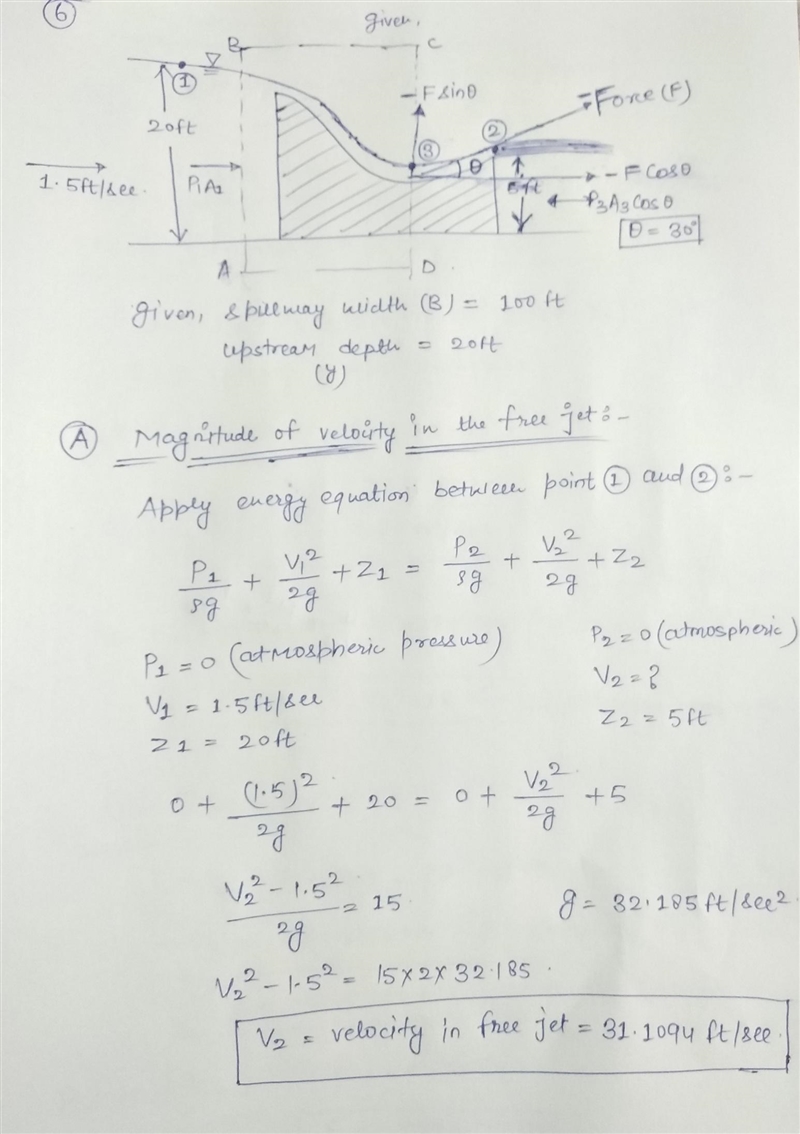 6
given,
B
C
1
- F sinθ
= Force (F)
20ft
3
2
θ
- F Cosθ
1.5ft/sec.
P1A1
5ft
P3A3 Cosθ
θ = 30°
A
D
given, spillway width (B) = 100 ft
upstream depth = 20ft
(y)
A Magnitude of velocity in the free jet:-
Apply energy equation between point 1 and 2:-
P1/ρg + V1²/2g + Z1 = P2/ρg + V2²/2g + Z2
P1 = 0 (atmospheric pressure) P2 = 0 (atmospheric)
V1 = 1.5ft/sec V2 = ?
Z1 = 20ft Z2 = 5ft
0 + (1.5)²/2g + 20 = 0 + V2²/2g + 5
V2² - 1.5²/2g = 15 g = 32.185 ft/sec²
V2² - 1.5² = 15 x 2 x 32.185
V2 = velocity in free jet = 31.1094 ft/sec.